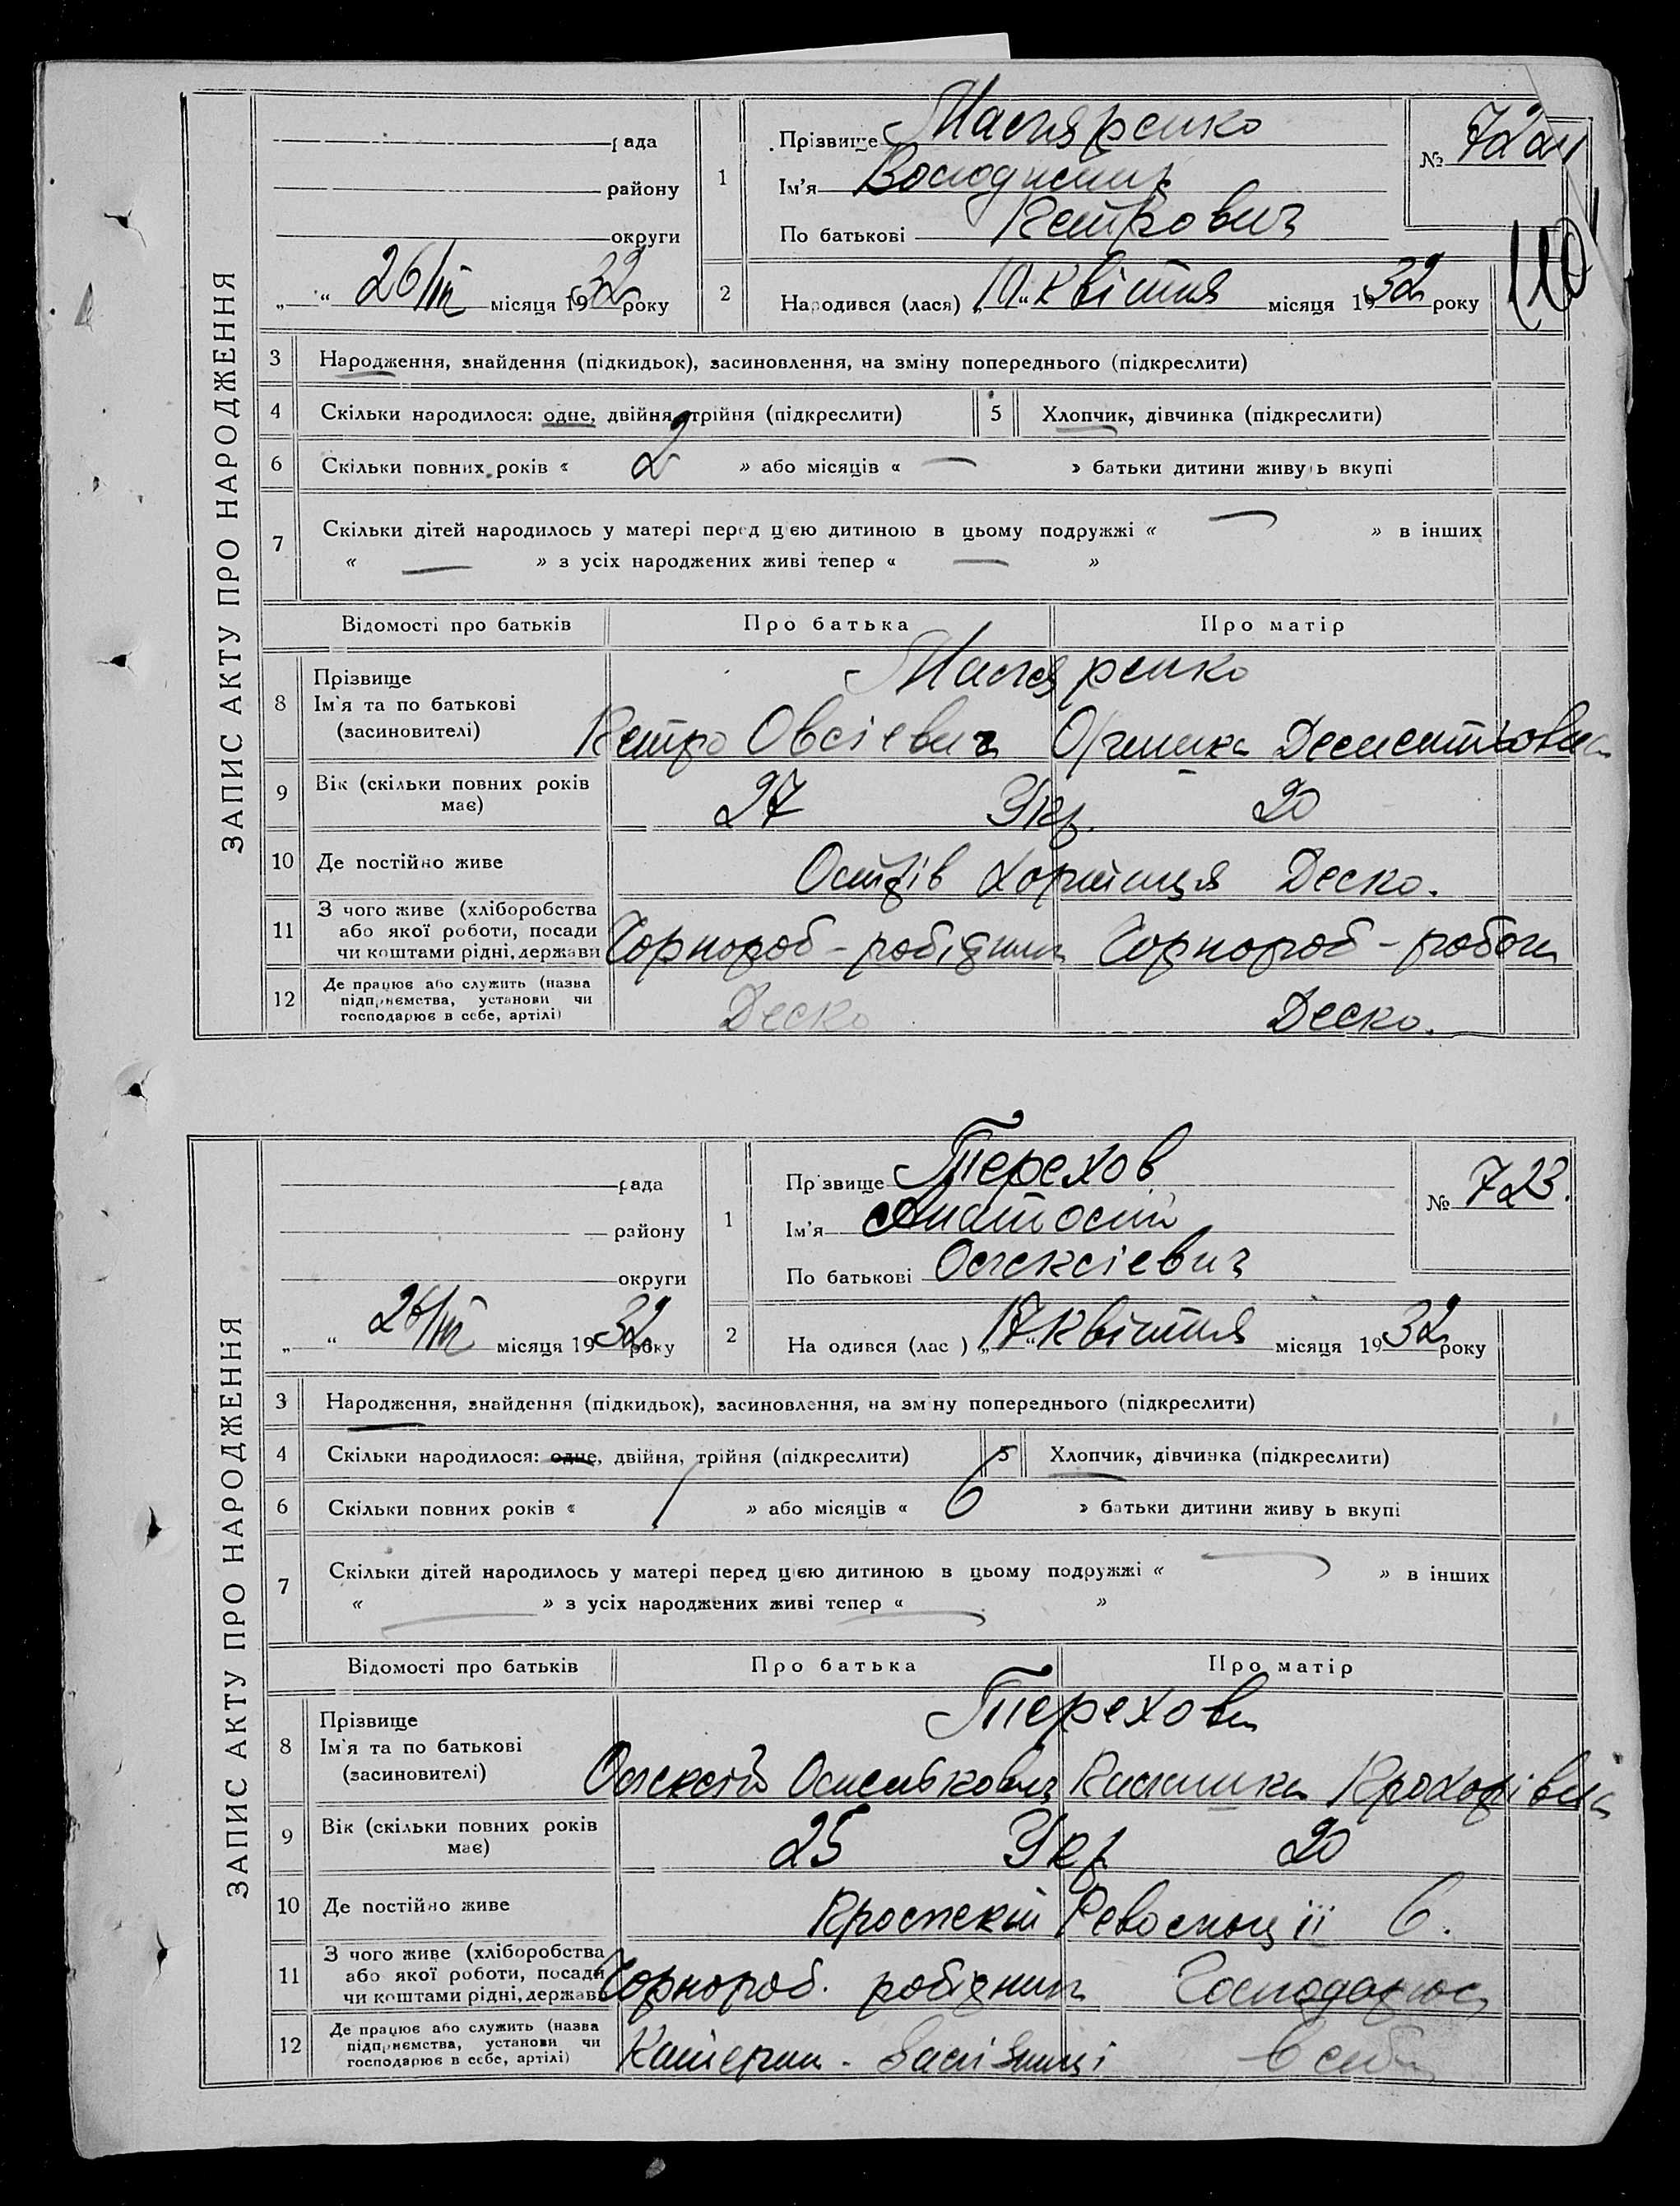 ЗАПИС АКТУ ПРО НАРОДЖЕННЯ
рада
району
округи
„ “ 26/IV місяця 1932 року
1
Прізвище Маляренко
Ім’я Володимир
По батькові Петрович
№ 722
110
2 Народився (лася) „10“ квітня місяця 1932 року
3 Народження, знайдення (підкидьок), засиновлення, на зміну попереднього (підкреслити)
4 Скільки народилося: одне, двійня, трійня (підкреслити) 5 Хлопчик, дівчинка (підкреслити)
6 Скільки повних років « 2 » або місяців « — » батьки дитини живуть вкупі
7 Скільки дітей народилось у матері перед цією дитиною в цьому подружжі « — » в інших
« — » з усіх народжених живі тепер « — »
Відомості про батьків Про батька Про матір
8 Прізвище Маляренко
Ім’я та по батькові
(засиновителі) Петро Овсієвич
9 Вік (скільки повних років має) 27 Укр. 20
10 Де постійно живе Острів Хортиця Деско.
11 З чого живе (хліборобства або якої роботи, посади чи коштами рідні, держави Чорнороб - робідник Чорнороб - робоч
12 Де працює або служить (назва підприємства, установи чи господарює в себе, артілі) Деско Деско.
ЗАПИС АКТУ ПРО НАРОДЖЕННЯ
рада
району
округи
„ “ 26/IV місяця 1932 року
1
Прізвище Терехов
Ім’я Анатолій
По батькові Олексієвич
№ 723.
2 Народився (лас ) „17“ квітня місяця 1932 року
3 Народження, знайдення (підкидьок), засиновлення, на зміну попереднього (підкреслити)
4 Скільки народилося: одне, двійня, трійня (підкреслити) 5 Хлопчик, дівчинка (підкреслити)
6 Скільки повних років « 1 » або місяців « 6 » батьки дитини живуть вкупі
7 Скільки дітей народилось у матері перед цією дитиною в цьому подружжі « — » в інших
« — » з усіх народжених живі тепер « — »
Відомості про батьків Про батька Про матір
8 Прізвище Терехови
Ім’я та по батькові
(засиновителі) Олексій Прохорівна
9 Вік (скільки повних років має) 25 Укр 20
10 Де постійно живе Проспект Революції 6.
11 З чого живе (хліборобства або якої роботи, посади чи коштами рідні, держави Чорнороб. робідник Господарює
12 Де працює або служить (назва підприємства, установи чи господарює в себе, артілі) Катерин. в себе